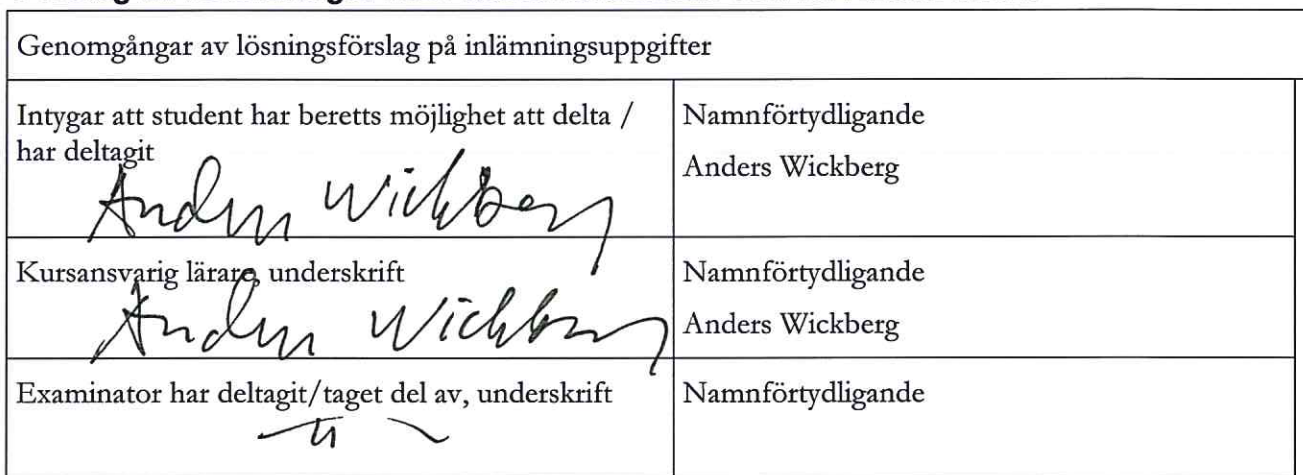 Genomgångar av lösningsförslag på inlämningsuppgifter
Intygar att student har beretts möjlighet att delta /
har deltagit
Anders Wickberg
Namnförtydligande
Anders Wickberg
Kursansvarig lärare, underskrift
Anders Wickberg
Namnförtydligande
Anders Wickberg
Examinator har deltagit/taget del av, underskrift
Namnförtydligande